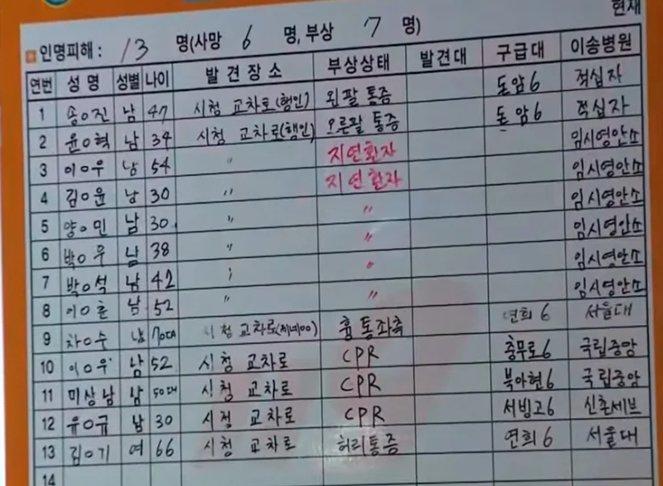 현재
인명피해 : 13 명(사망 6 명, 부상 7 명)
연번 성명 성별 나이 발견장소 부상상태 발견대 구급대 이송병원
1 송O진 남 47 시청 교차로(행인) 왼팔 통증 도암6 적십자
2 윤O혁 남 34 시청 교차로(행인) 오른팔 통증 도암6 적십자
3 이O우 남 54 〃 지연환자 임시영안소
4 김O윤 남 30 〃 지연환자 임시영안소
5 양O민 남 30 〃 〃 임시영안소
6 박O우 남 38 〃 〃 임시영안소
7 박O석 남 42 〃 〃 임시영안소
8 이O훈 남 52 〃 〃 임시영안소
9 차O수 남 70대 시청 교차로 흉통좌측 연희6 서울대
10 이O우 남 52 시청 교차로 CPR 충무로6 국립중앙
11 미상남 남 50대 시청 교차로 CPR 북아현6 국립중앙
12 유O규 남 30 시청 교차로 CPR 서빙고6 신촌세브
13 김O기 여 66 시청 교차로 허리통증 연희6 서울대
14